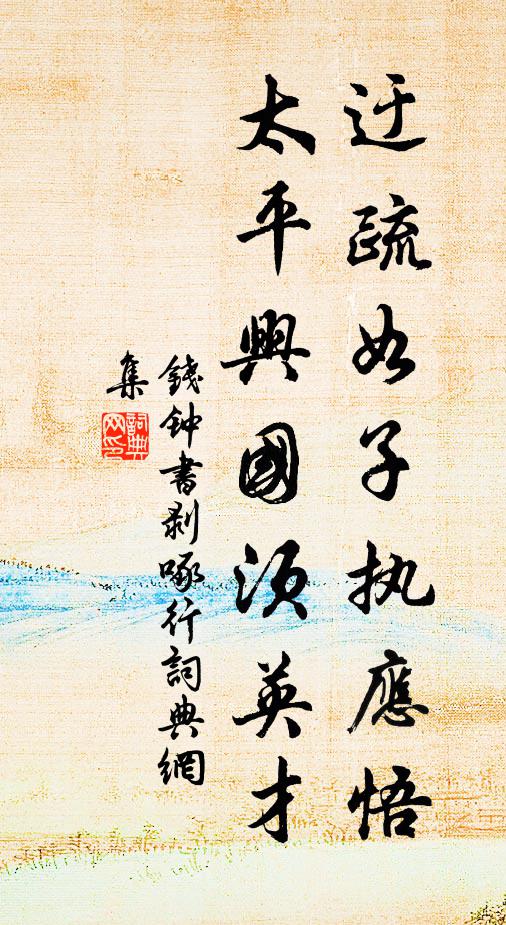 迂疏如子执應悟
太平興國須英才
錢钟書剥啄行詞典網
集
詞典
网印